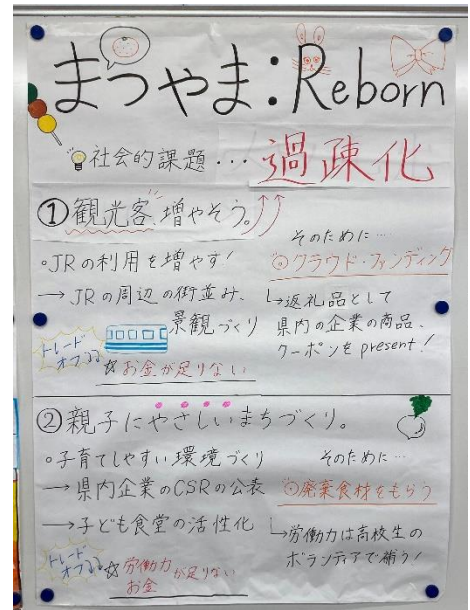 まつやま：Reborn
社会的課題・・・過疎化
①観光客増やそう。↑↑
◦JRの利用を増やす!
→JRの周辺の街並み、
景観づくり
トレードオフ
☆お金が足りない
そのために…
◎クラウド・ファンディング
↳返礼品として
県内の企業の商品、
クーポンをpresent!
②親子にやさしいまちづくり。
◦子育てしやすい環境づくり
→県内企業のCSRの公表
→子ども食堂の活性化
トレードオフ
☆労働力
お金
が足りない
そのために…
◎廃棄食材をもらう
↳労働力は高校生の
ボランティアで補う!